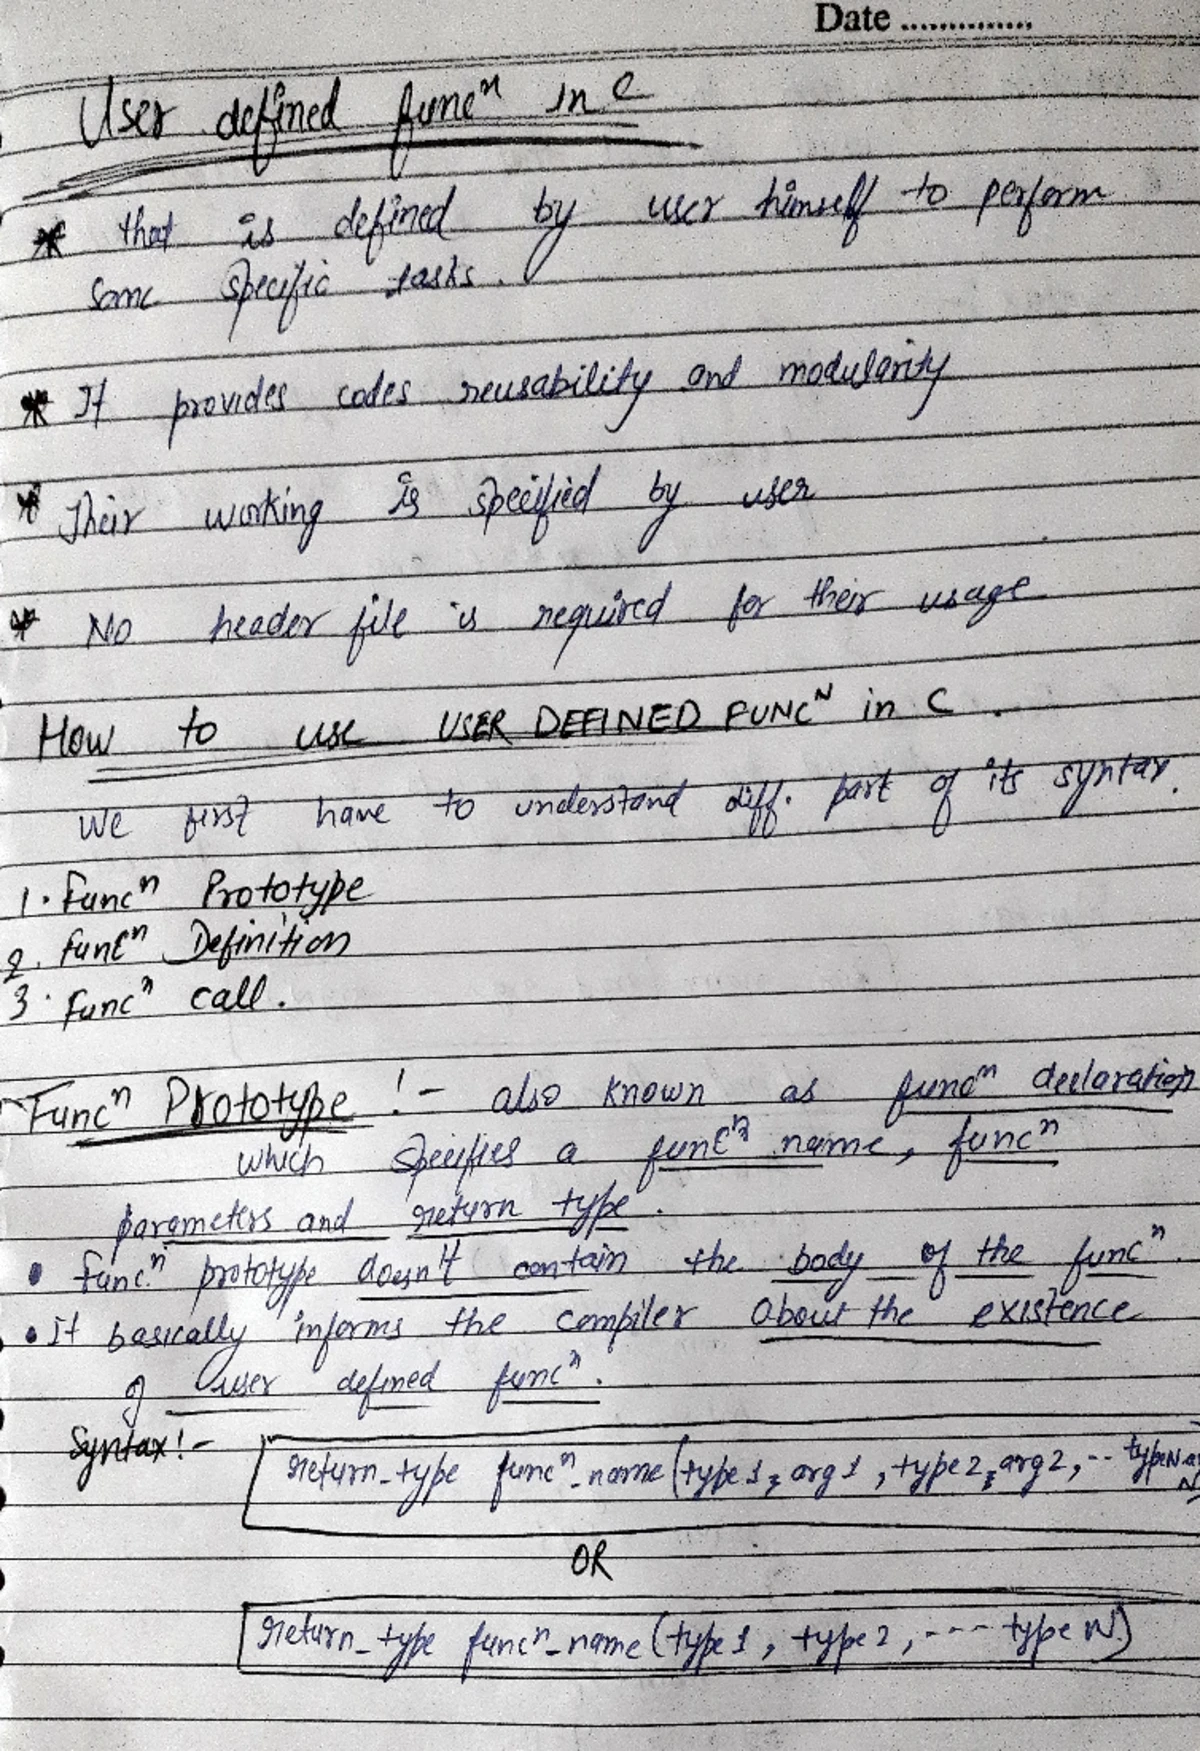 Date ..............
User defined funcⁿ in C
* that is defined by user himself to perform
some specific tasks.
* It provides codes reusability and modularity
* Their working is specified by user
* No header file is required for their usage
How to use USER DEFINED FUNCᴺ in C.
We first have to understand diff. part of its syntax.
1. Funcⁿ Prototype
2. Funcⁿ Definition
3. Funcⁿ call.
Funcⁿ Prototype :- also known as funcⁿ declaration
which specifies a funcⁿ name, funcⁿ
parameters and return type.
• Funcⁿ prototype doesn't contain the body of the funcⁿ.
• It basically informs the compiler about the existence
of user defined funcⁿ.
Syntax :-
return_type funcⁿ_name (type1 arg1, type2 arg2, -- typeN
OR
return_type funcⁿ_name (type1, type2, --- typeN)